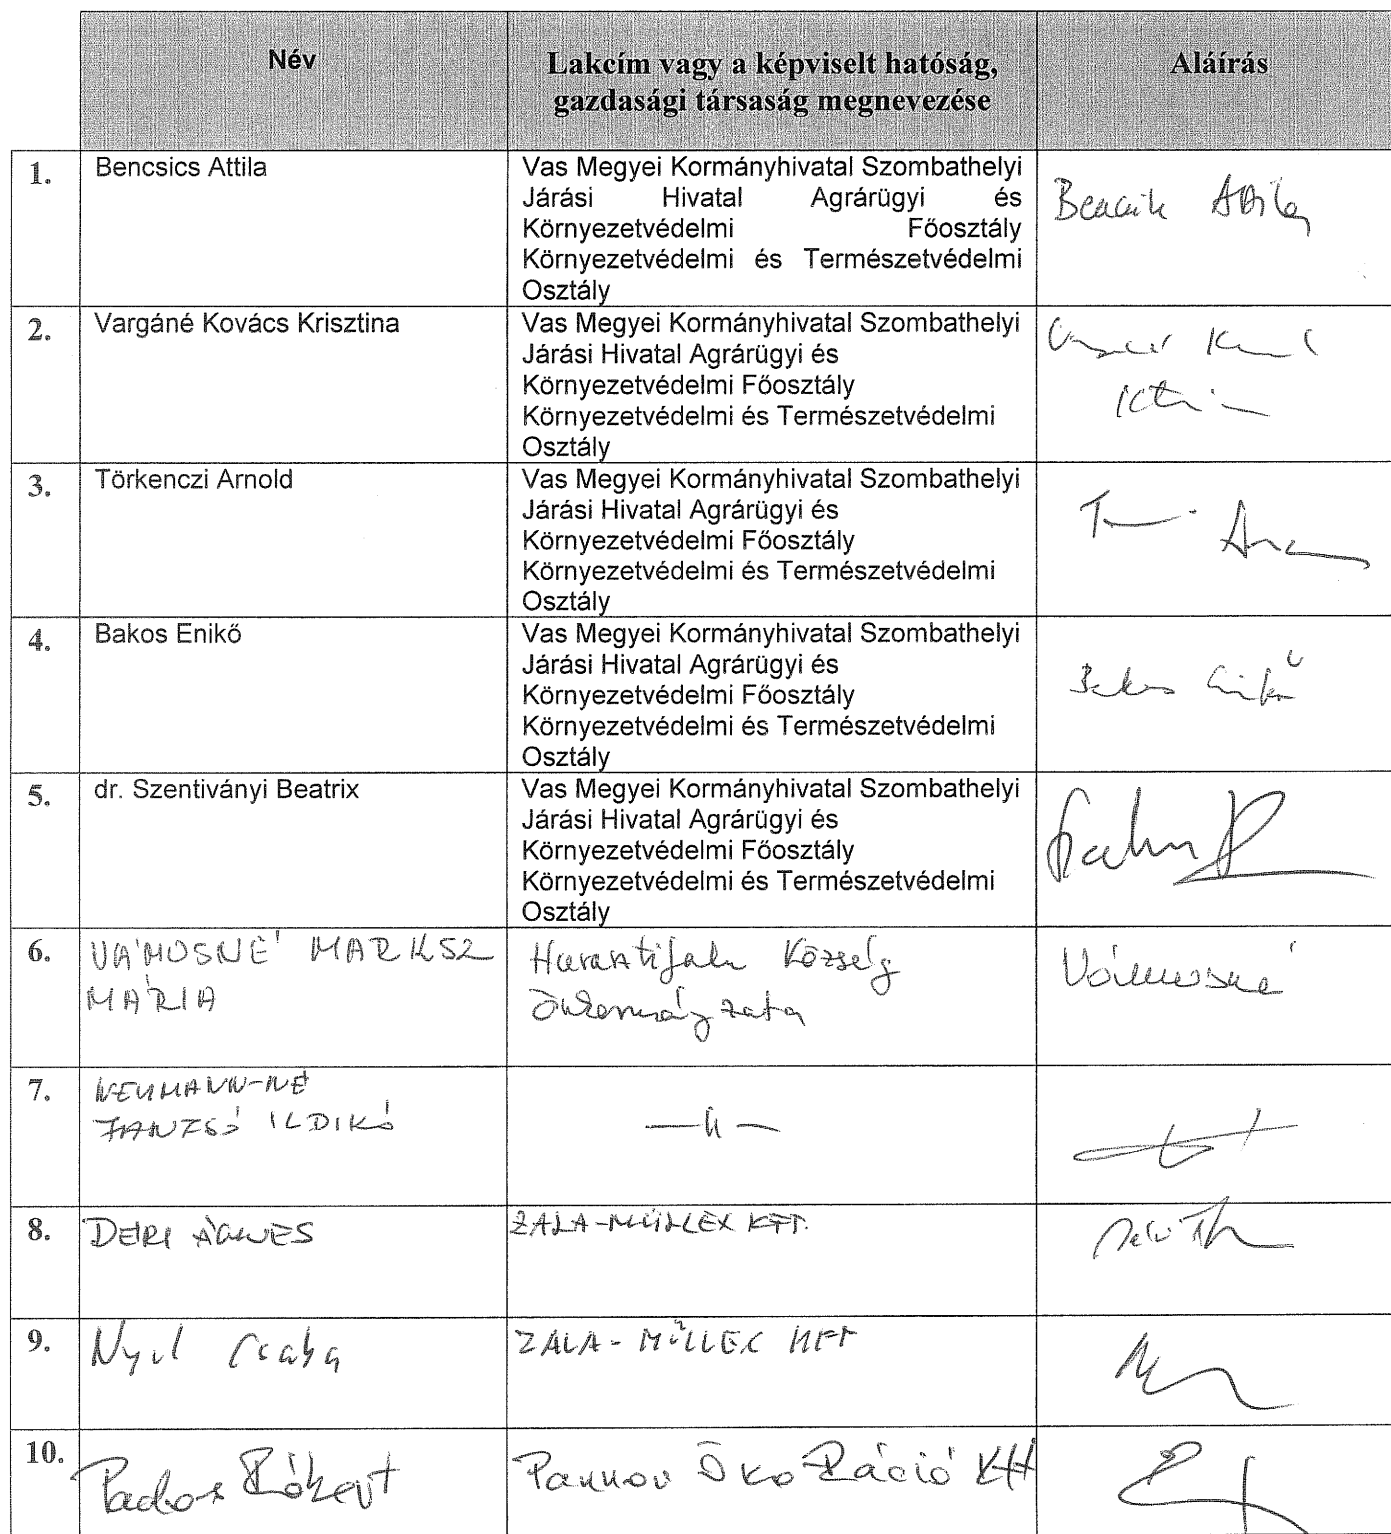 Név
Lakcím vagy a képviselt hatóság,
gazdasági társaság megnevezése
Aláírás
1.
Bencsics Attila
Vas Megyei Kormányhivatal Szombathelyi
Járási Hivatal Agrárügyi és
Környezetvédelmi Főosztály
Környezetvédelmi és Természetvédelmi
Osztály
2.
Vargáné Kovács Krisztina
Vas Megyei Kormányhivatal Szombathelyi
Járási Hivatal Agrárügyi és
Környezetvédelmi Főosztály
Környezetvédelmi és Természetvédelmi
Osztály
3.
Törkenczi Arnold
Vas Megyei Kormányhivatal Szombathelyi
Járási Hivatal Agrárügyi és
Környezetvédelmi Főosztály
Környezetvédelmi és Természetvédelmi
Osztály
4.
Bakos Enikő
Vas Megyei Kormányhivatal Szombathelyi
Járási Hivatal Agrárügyi és
Környezetvédelmi Főosztály
Környezetvédelmi és Természetvédelmi
Osztály
Bakos Enikő
5.
dr. Szentiványi Beatrix
Vas Megyei Kormányhivatal Szombathelyi
Járási Hivatal Agrárügyi és
Környezetvédelmi Főosztály
Környezetvédelmi és Természetvédelmi
Osztály
6.
VÁMOSNÉ MARKSZ
MÁRIA
Harasztifalu Község
Önkormányzata
Vámosné
7.
NEUMANN-NÉ
JANZSÓ ILDIKÓ
8.
DERI ÁGNES
ZALA-MÜLLEX KFT.
9.
Nyul Csaba
ZALA-MÜLLEX KFT
10.
Pados Róbert
Pannon Öko Ráció Kft